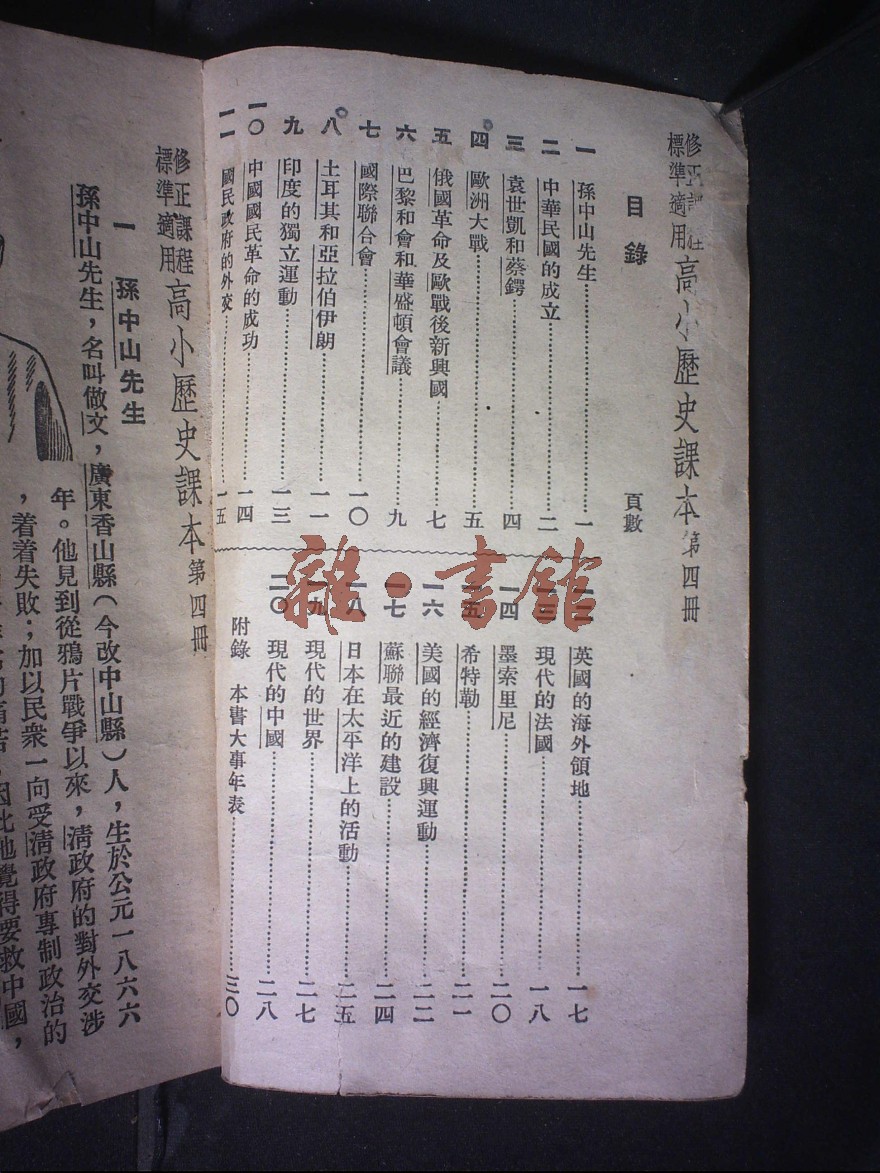 修正課程
標準適用
高小歷史課本 第四冊
目錄
頁數
一 孫中山先生 一
二 中華民國的成立 二
三 袁世凱和蔡鍔 四
四 歐洲大戰 五
五 俄國革命及歐戰後新興國 七
六 巴黎和會和華盛頓會議 九
七 國際聯合會 一〇
八 土耳其和亞拉伯伊朗 一一
九 印度的獨立運動 一三
一〇 中國國民革命的成功 一四
一一 國民政府的外交 一五
一二 英國的海外領地 一七
一三 現代的法國 一八
一四 墨索里尼 二〇
一五 希特勒 二一
一六 美國的經濟復興運動 二二
一七 蘇聯最近的建設 二四
一八 日本在太平洋上的活動 二五
一九 現代的世界 二七
二〇 現代的中國 二八
附錄 本書大事年表 三〇
雜·書館
修正課程
標準適用
高小歷史課本 第四冊
一 孫中山先生
孫中山先生，名叫做文，廣東香山縣（今改中山縣）人，生於公元一八六六
年。他見到從鴉片戰爭以來，清政府的對外交涉
，着着失敗；加以民衆一向受清政府專制政治的
痛苦，因此他覺得要救中國，